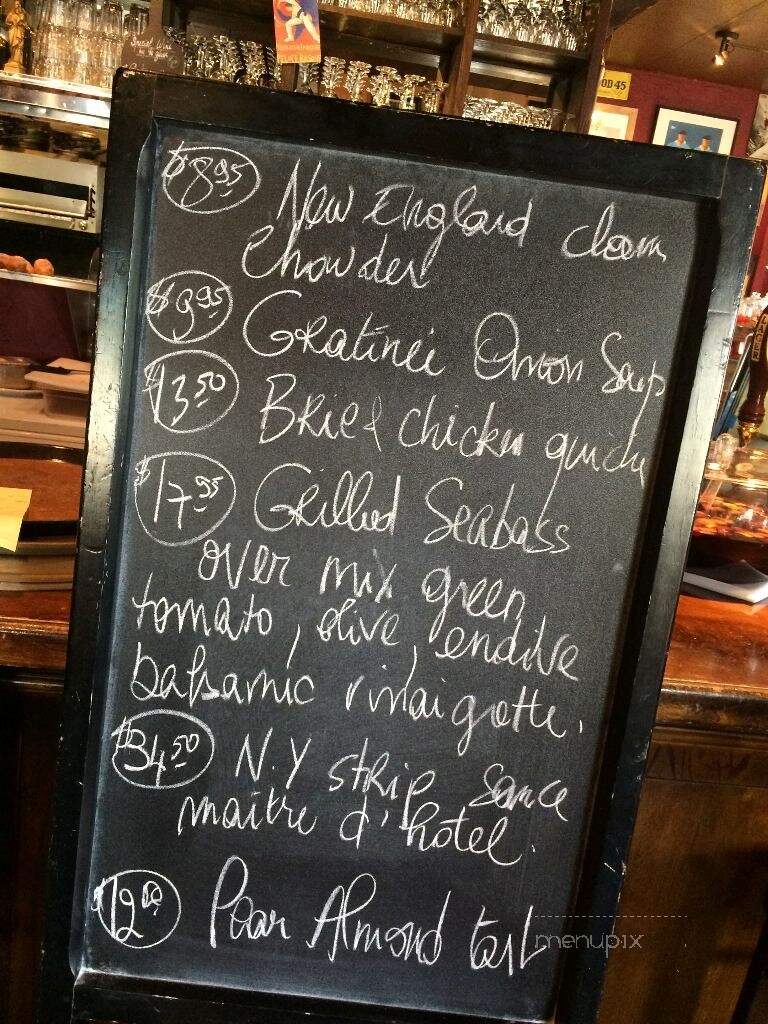 $8.95 New England clam
chowder
$9.95 Gratineé Onion Soup
$13.50 Brie & chicken quiche
$17.95 Grilled Seabass
over mix green
tomato, olive, endive
balsamic vinaigrette.
$34.50 N.Y strip sauce
maître d'hôtel.
$12.00 Pear Almond tart
menupix
OD 45